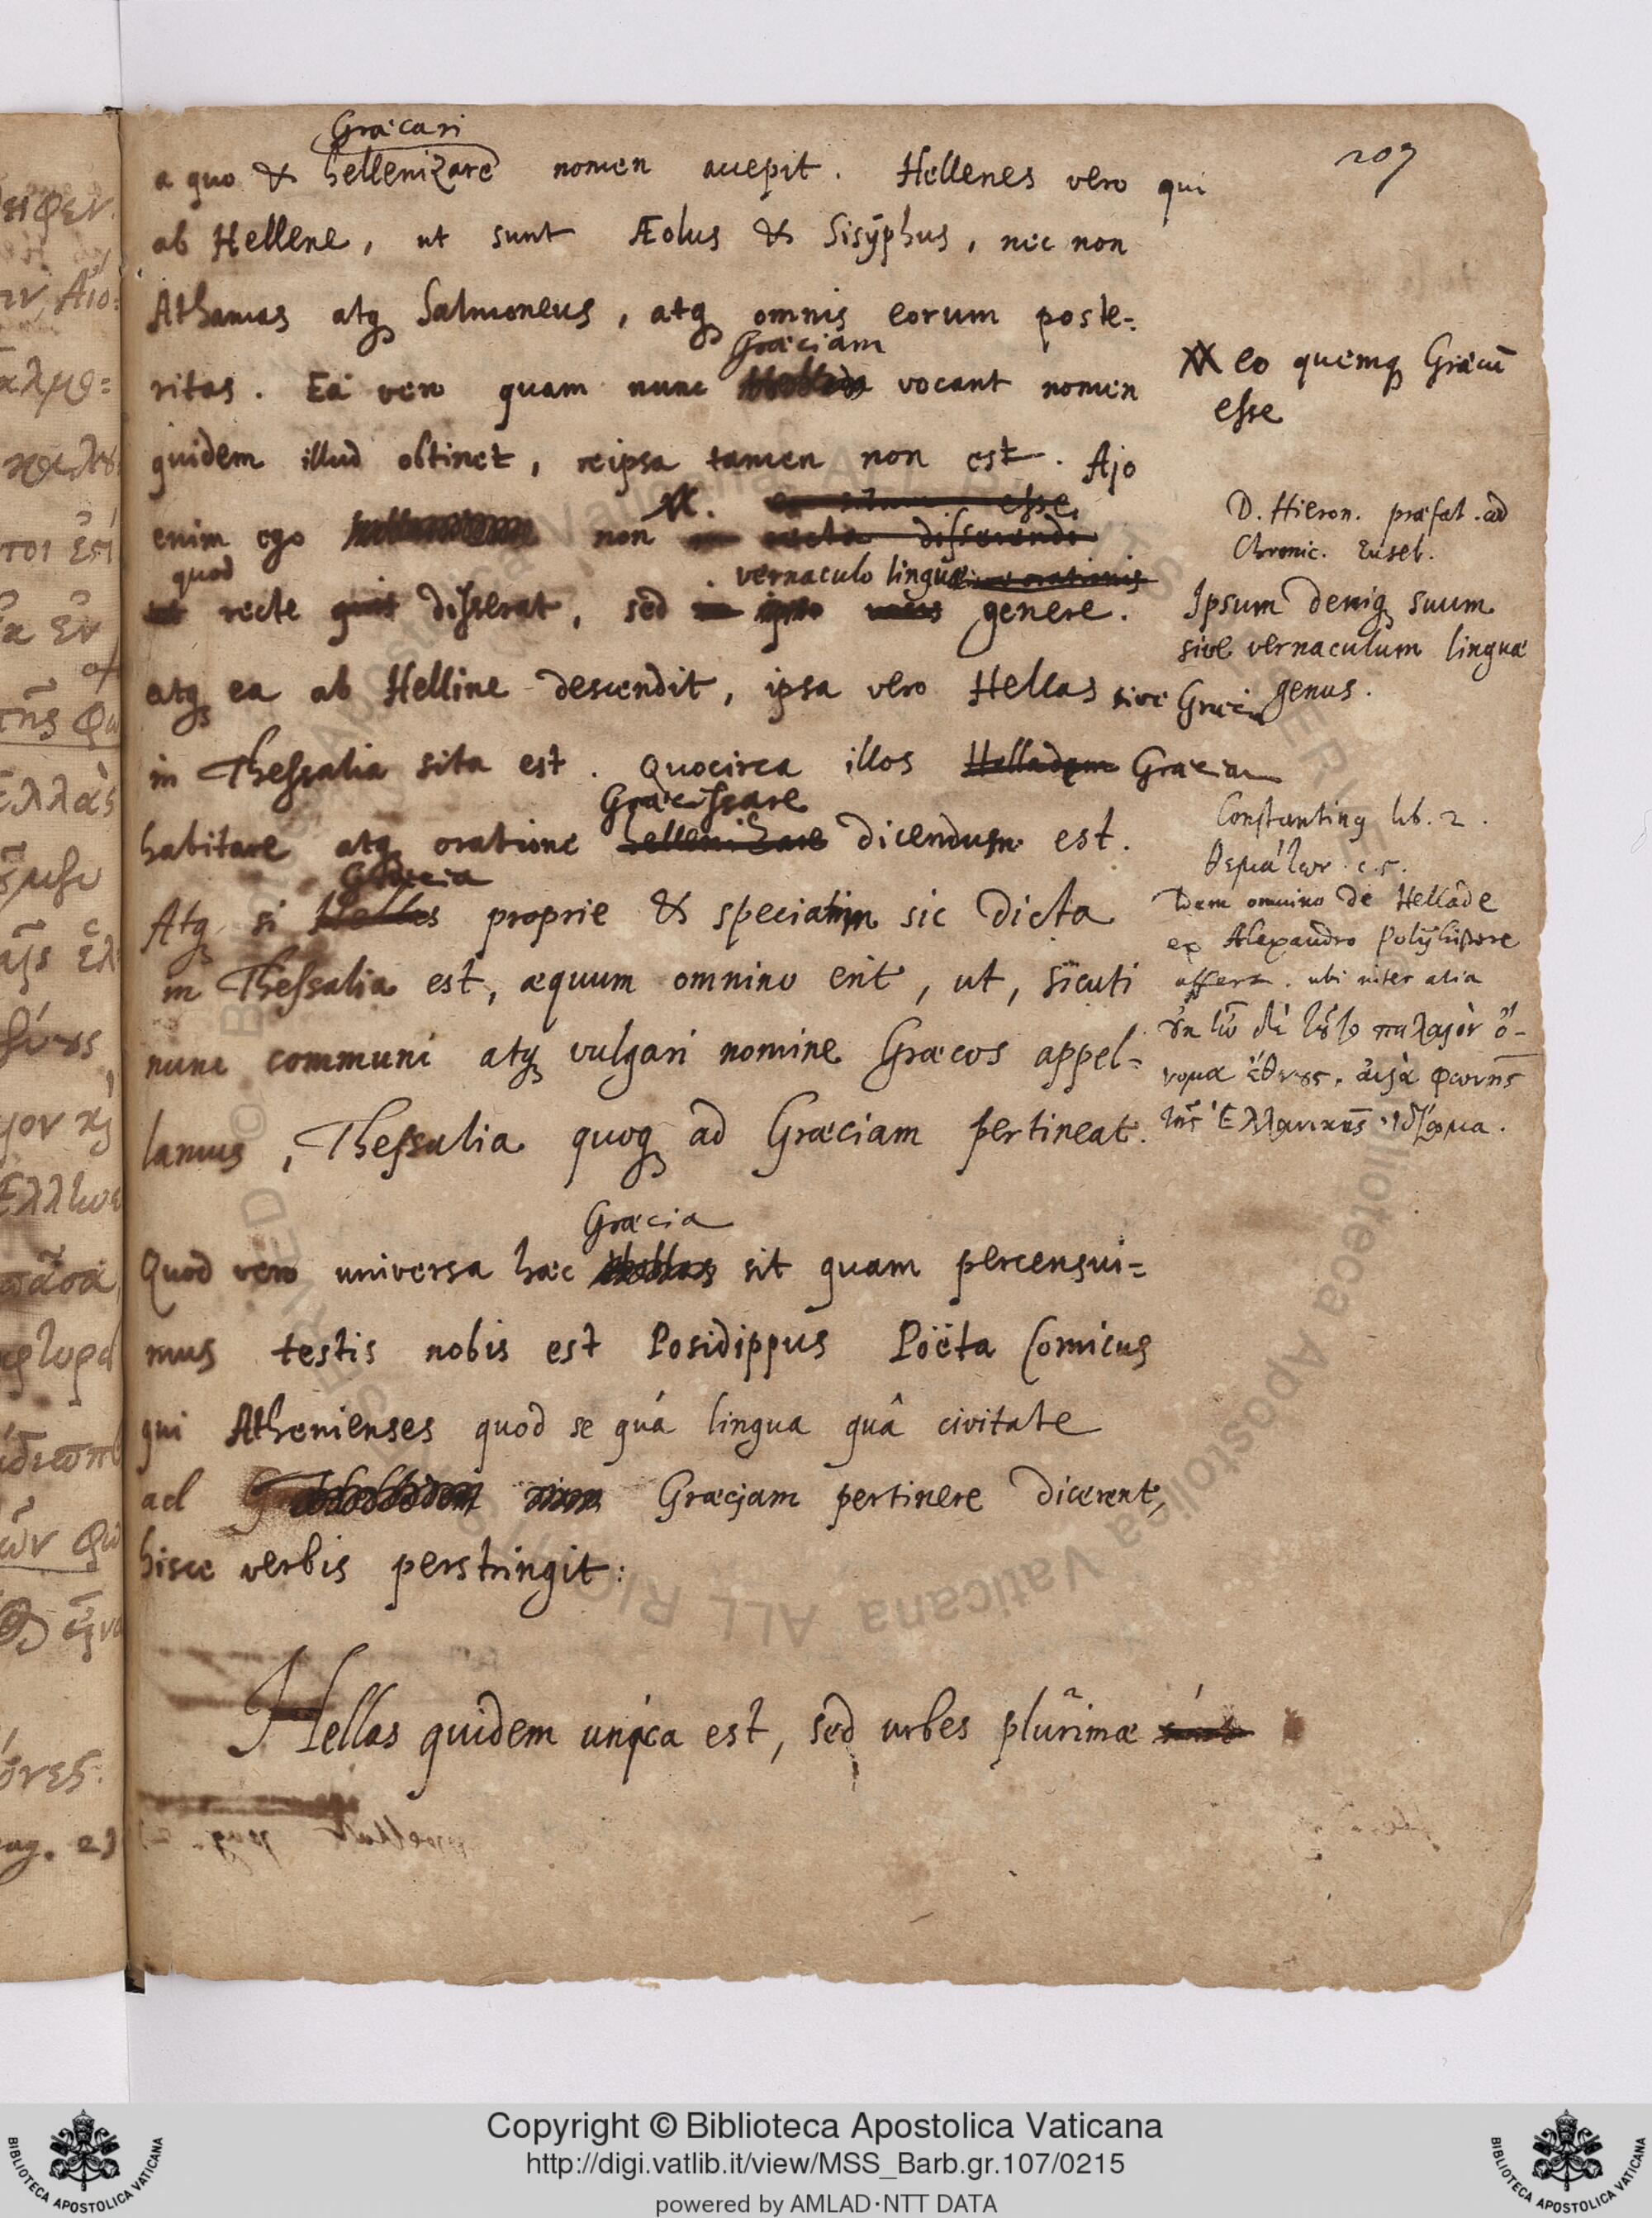 207
Græcari
a quo & hellenizare nomen accepit. Hellenes vero qui
ab Hellene, ut sunt Æolus & Sisÿphus, nec non
Athamas atq Salmoneus, atq omnis eorum poste-
Græciam
ritas. Ea vero quam nunc vocant nomen
quidem illud obtinet, reipsa tamen non est. Ajo
esse
enim ego non recta disserendi
quod vernaculo linguæ orationis
recte quis disserat, sed genere.
atq ea ab Helline descendit, ipsa vero Hellas sive Græcia
in Thessalia sita est. Quocirca illos Helladem Græciam
Græcissare
habitare atq oratione hellenizare dicendum est.
Græcia
Atq si Hellas proprie & speciatim sic dicta
in Thessalia est, æquum omnino erit, ut, sicuti
nunc communi atq vulgari nomine Græcos appel-
lamus, Thessalia quoq ad Græciam pertineat.
Græcia
Quod vero universa hæc Hellas sit quam percensui-
mus testis nobis est Posidippus Pöëta Comicus
qui Athenienses quod se quá lingua quâ civitate
ad Græciam pertinere dicerent,
hisce verbis perstringit:
Hellas quidem unica est, sed urbes plurimæ sunt
eo quemq Græcū
esse
D. Hieron. præfat. ad
Chronic. Euseb.
Ipsum deniq suum
sive vernaculum linguæ
genus.
Constantinq lib. 2.
θεμάτων c.5.
Idem omnino de Hellade
ex Alexandro Polÿhistore
affert. ubi inter alia
παλαιὸν ὄ-
νομα ἔθνους, ἀλλὰ φωνῆς
τῆς Ἑλληνικῆς ἰδίωμα.
Copyright © Biblioteca Apostolica Vaticana
http://digi.vatlib.it/view/MSS_Barb.gr.107/0215
powered by AMLAD·NTT DATA
BIBLIOTECA APOSTOLICA VATICANA
BIBLIOTECA APOSTOLICA VATICANA